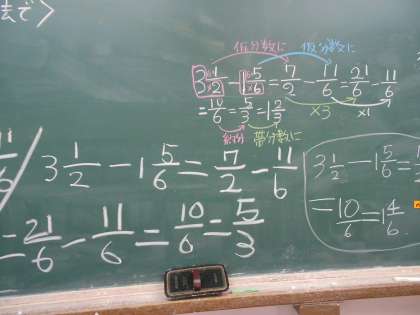 去で>
仮分数に 仮分数に
3 1/2 - 1 5/6 = 7/2 - 11/6 = 21/6 - 11/6
×3 ×1
= 10/6 = 5/3 = 1 2/3
約分 帯分数に
11/6
3 1/2 - 1 5/6 = 7/2 - 11/6
= 21/6 - 11/6 = 10/6 = 5/3
3 1/2 - 1 5/6 =
= 10/6 = 1 4/6